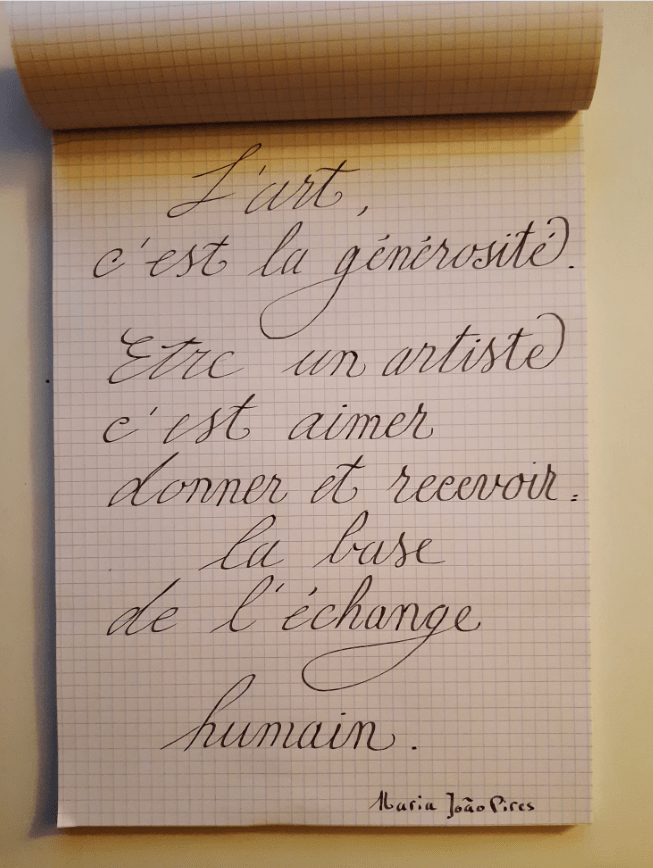 L'art,
c'est la générosité.
Etre un artiste
c'est aimer
donner et recevoir :
la base
de l'échange
humain.
Maria João Pires